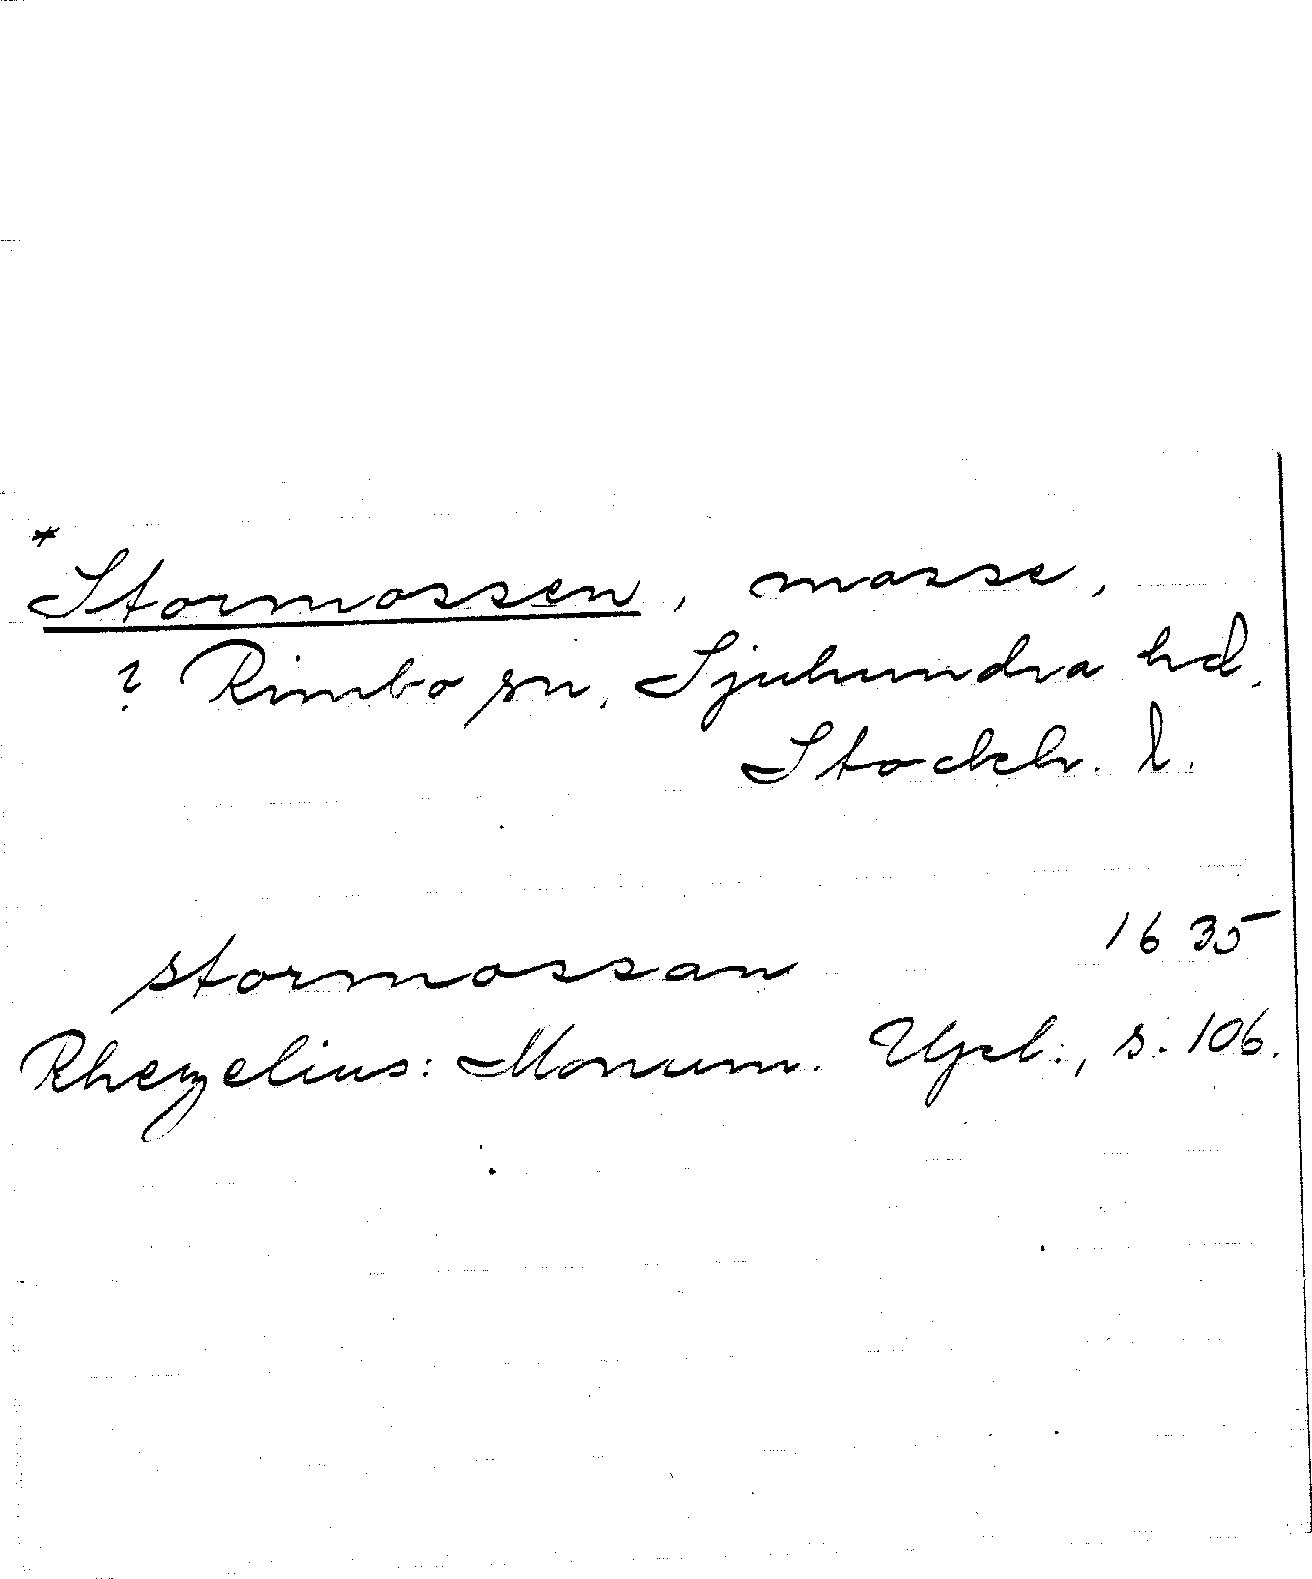 *
Stormossen, mosse,
? Rimbo sn, Sjuhundra hd,
Stockh. l.
stormossan 1635
Rhezelius: Monum. Upl., s. 106.